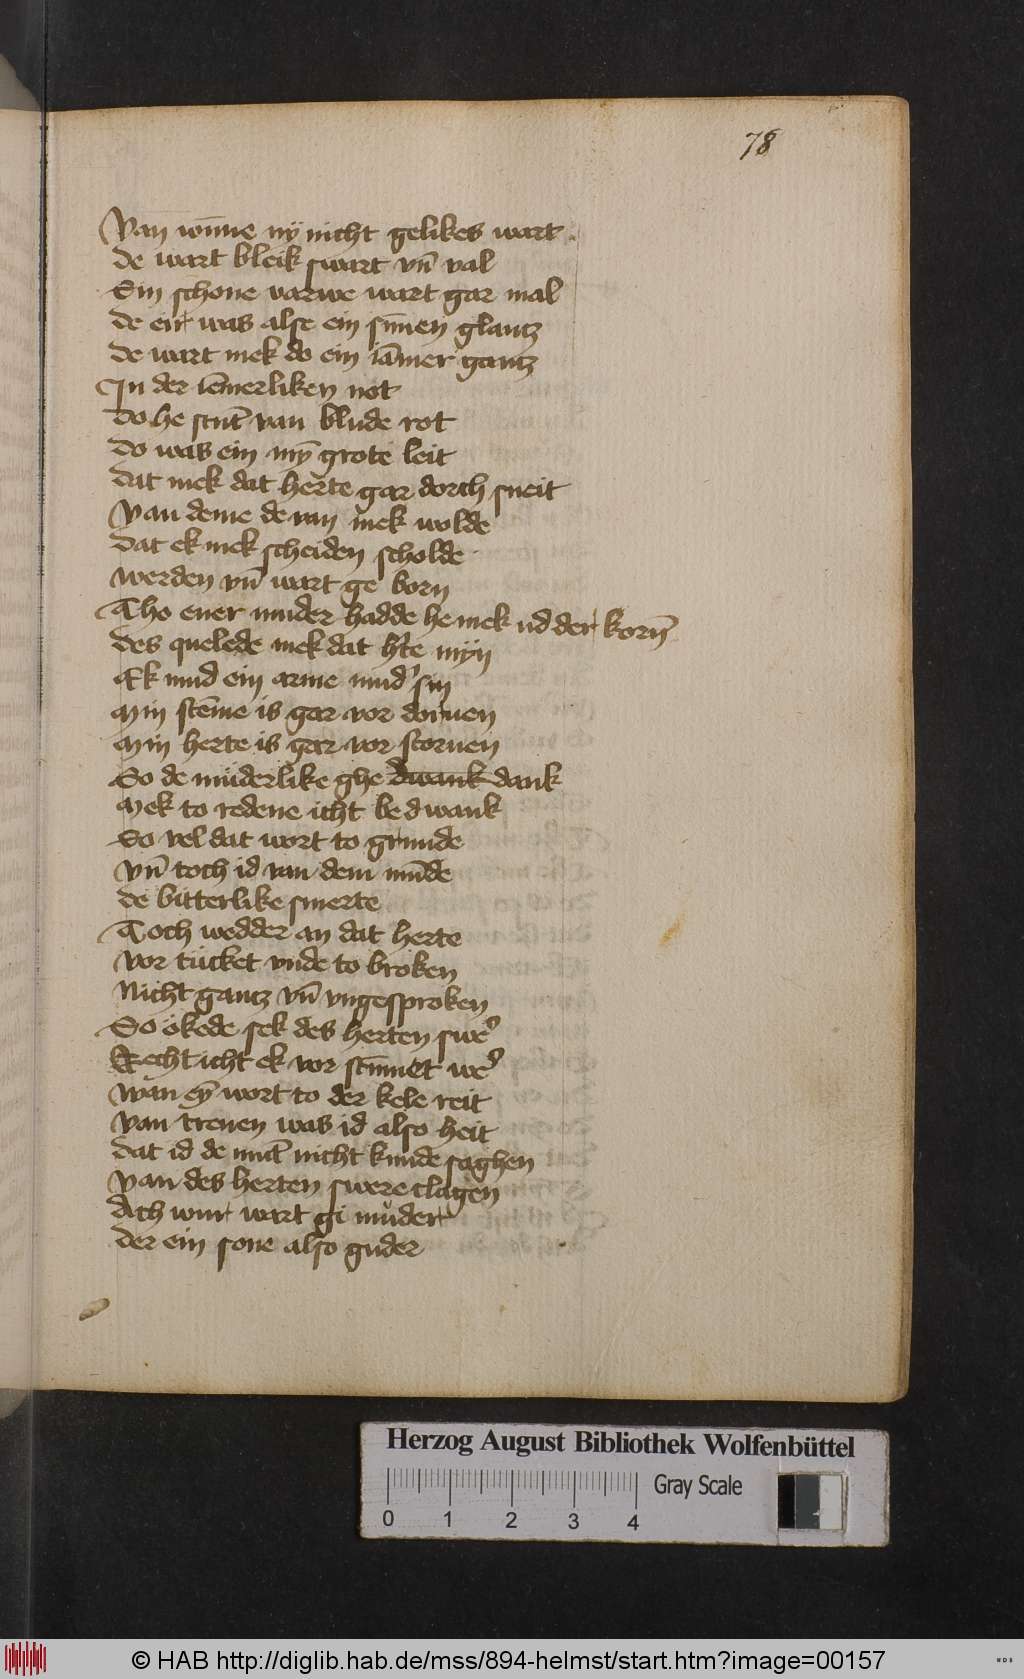 78
Van wūne nÿ nicht gelikes wart
de wart bleik swart vn̄ val
Sin schone varwe wart gar mal
de eir was alse ein sūnen glantz
de wart mek do ein iām̄er gantz
In der iēmerliken not
do he stūt van blude rot
do was ein mȳ grote leit
dat mek dat herte gar dorch sneit
Van deme de van mek wolde
dat ek mek scheiden scholde
werden vn̄ wart ge born
Tho euer muder hadde he mek ud der korn̄
des quelede mek dat hˀte mÿn
Ek mud ein arme mudˀ sin
Min stēme is gar vor doruen
Min herte is gar vor storuen
So de müderlike ghe dwank dank
Mek to redene icht be dwank
So vel dat wort to grunde
vn̄ toch id van dem mūde
de bitterlike smerte
Toch wedder an dat herte
vor tücket vnde to broken
Nicht gantz vn̄ vngesproken
So ökede sek des herten sweˀ
Recht icht ek vor stūmet weˀ
wan eȳ wort to der kele reit
van treuen was id also heit
dat id de mūt nicht kunde saghen
van des herten swere clagen
Ach wur wart gi müder
der ein sone also guder
Herzog August Bibliothek Wolfenbüttel
Gray Scale
0 1 2 3 4
© HAB http://diglib.hab.de/mss/894-helmst/start.htm?image=00157